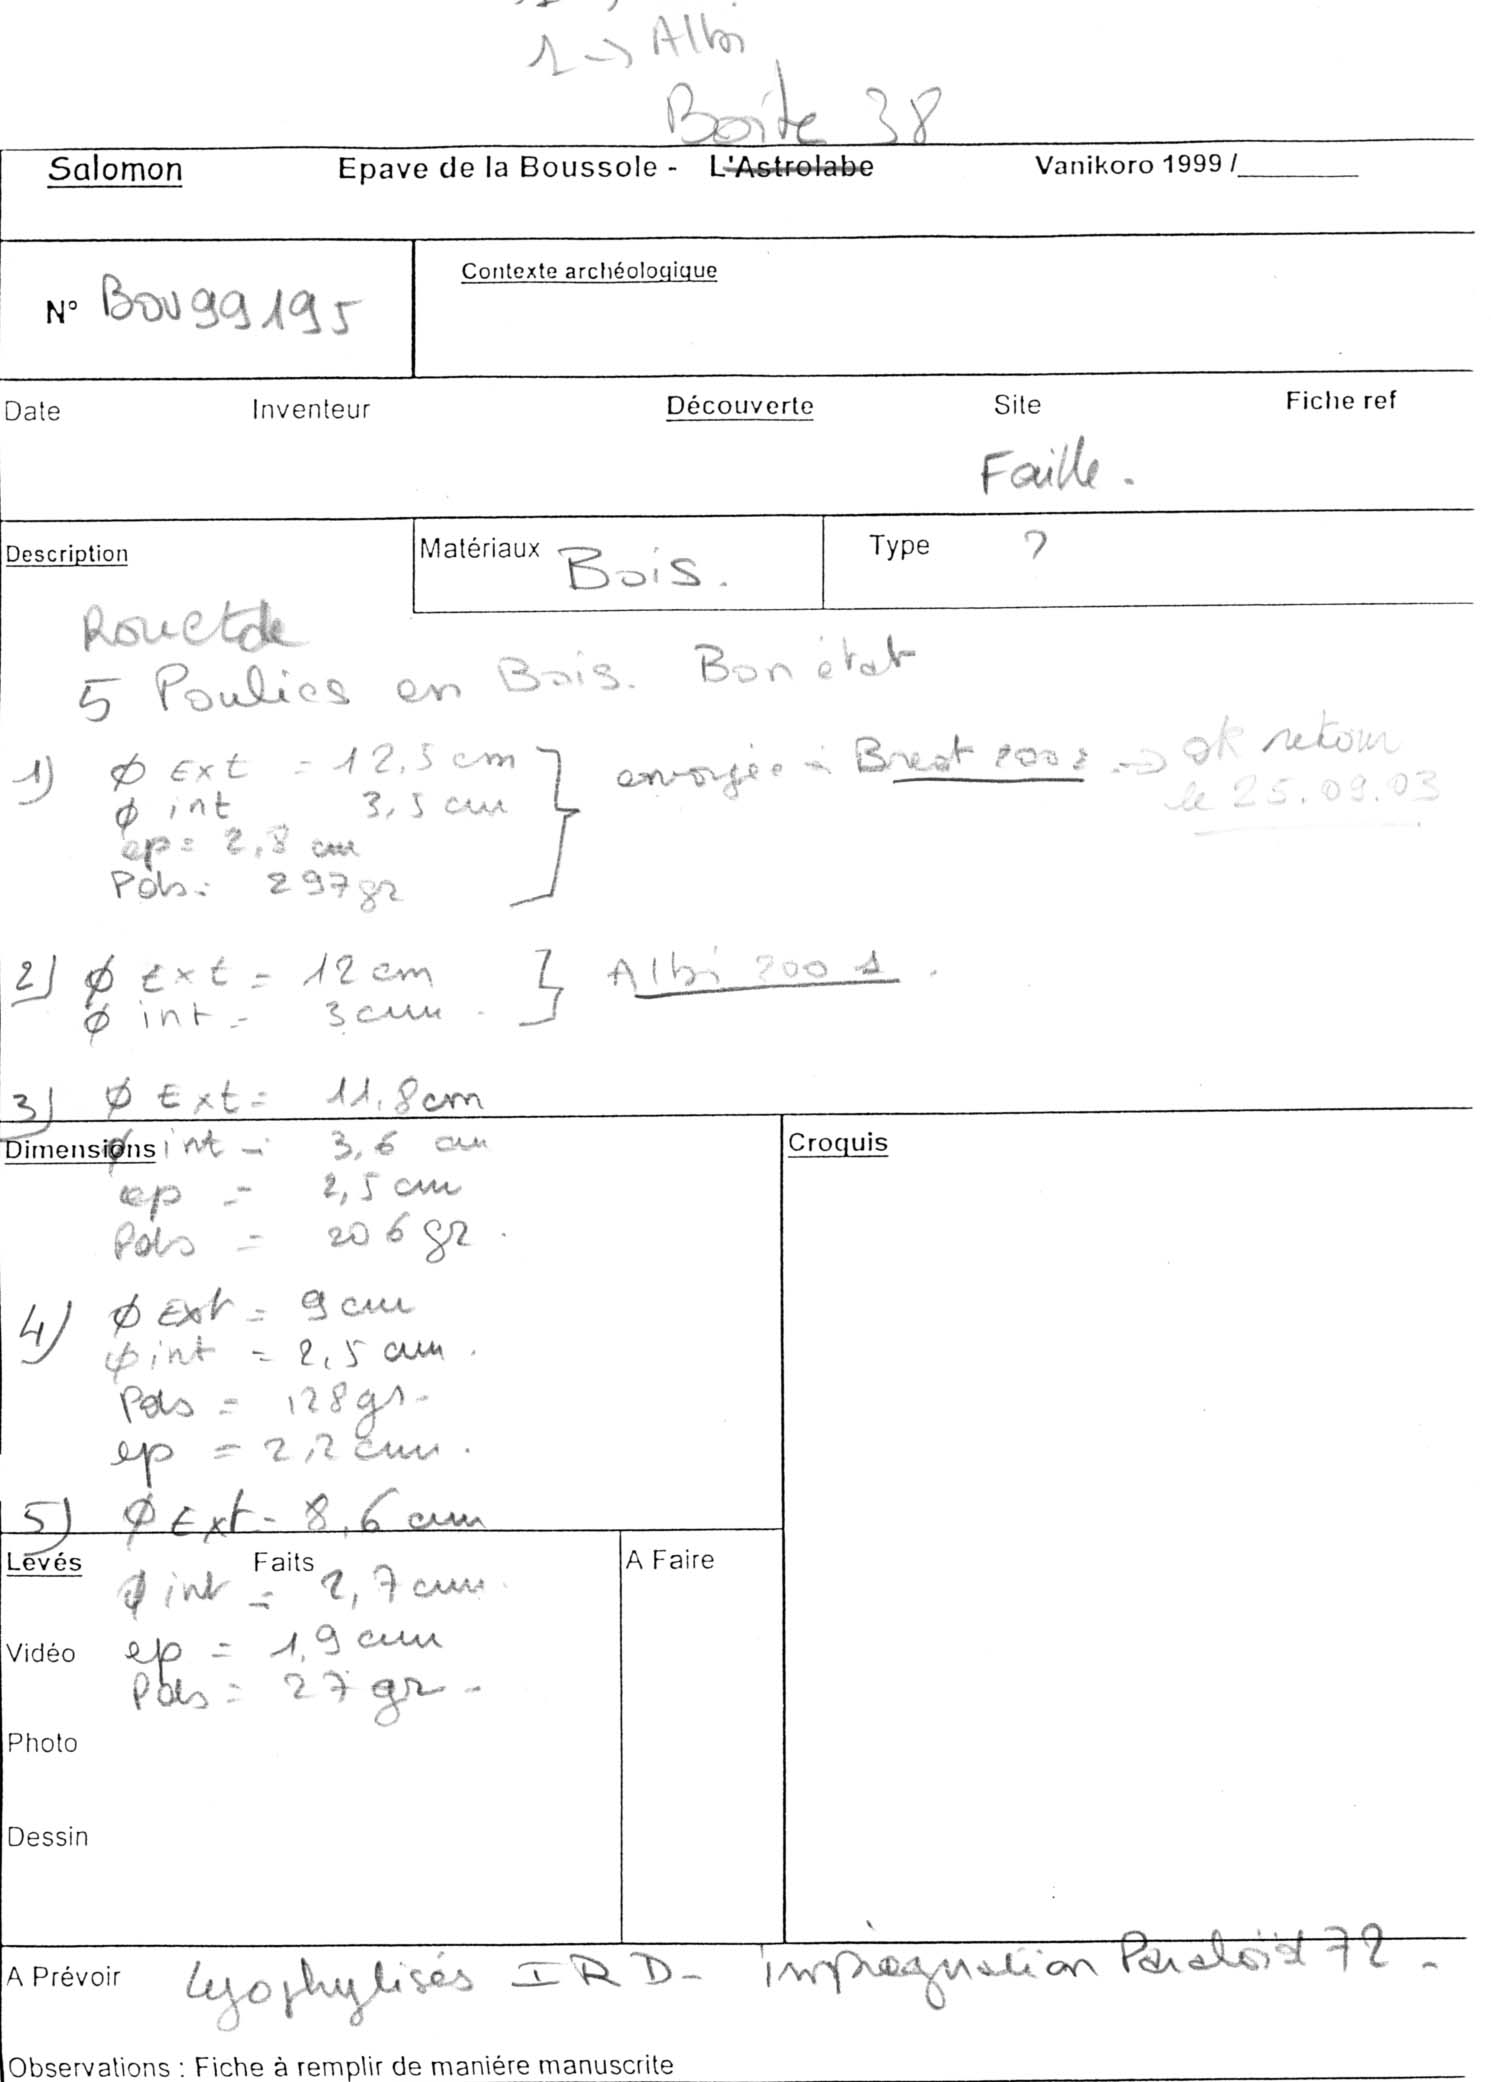 1 -> Albi
Boîte 38
Salomon Epave de la Boussole - L'Astrolabe Vanikoro 1999 /________
N° BOU99195 Contexte archéologique
Date Inventeur Découverte Site Fiche ref
Faille.
Description Matériaux Bois. Type ?
Rouet de
5 Poulies en Bois. Bon état
1) Ø Ext = 12,5 cm envoyée à Brest 2002 -> ok retour
Ø int 3,5 cm le 25.09.03
ep = 2,8 cm
Pds = 297 gr
2) Ø Ext = 12 cm Albi 2001.
Ø int = 3 cm.
3) Ø Ext = 11,8 cm
Dimensions Ø int = 3,6 cm Croquis
ep = 2,5 cm
Pds = 206 gr.
4) Ø Ext = 9 cm
Ø int = 2,5 cm.
Pds = 128 gr-
ep = 2,2 cm.
5) Ø Ext = 8,6 cm
Levés Faits A Faire
Ø int = 2,7 cm.
Vidéo ep = 1,9 cm
Pds = 27 gr-
Photo
Dessin
A Prévoir Lyophylisés IRD - imprégnation Paraloïd 72 -
Observations : Fiche à remplir de maniére manuscrite